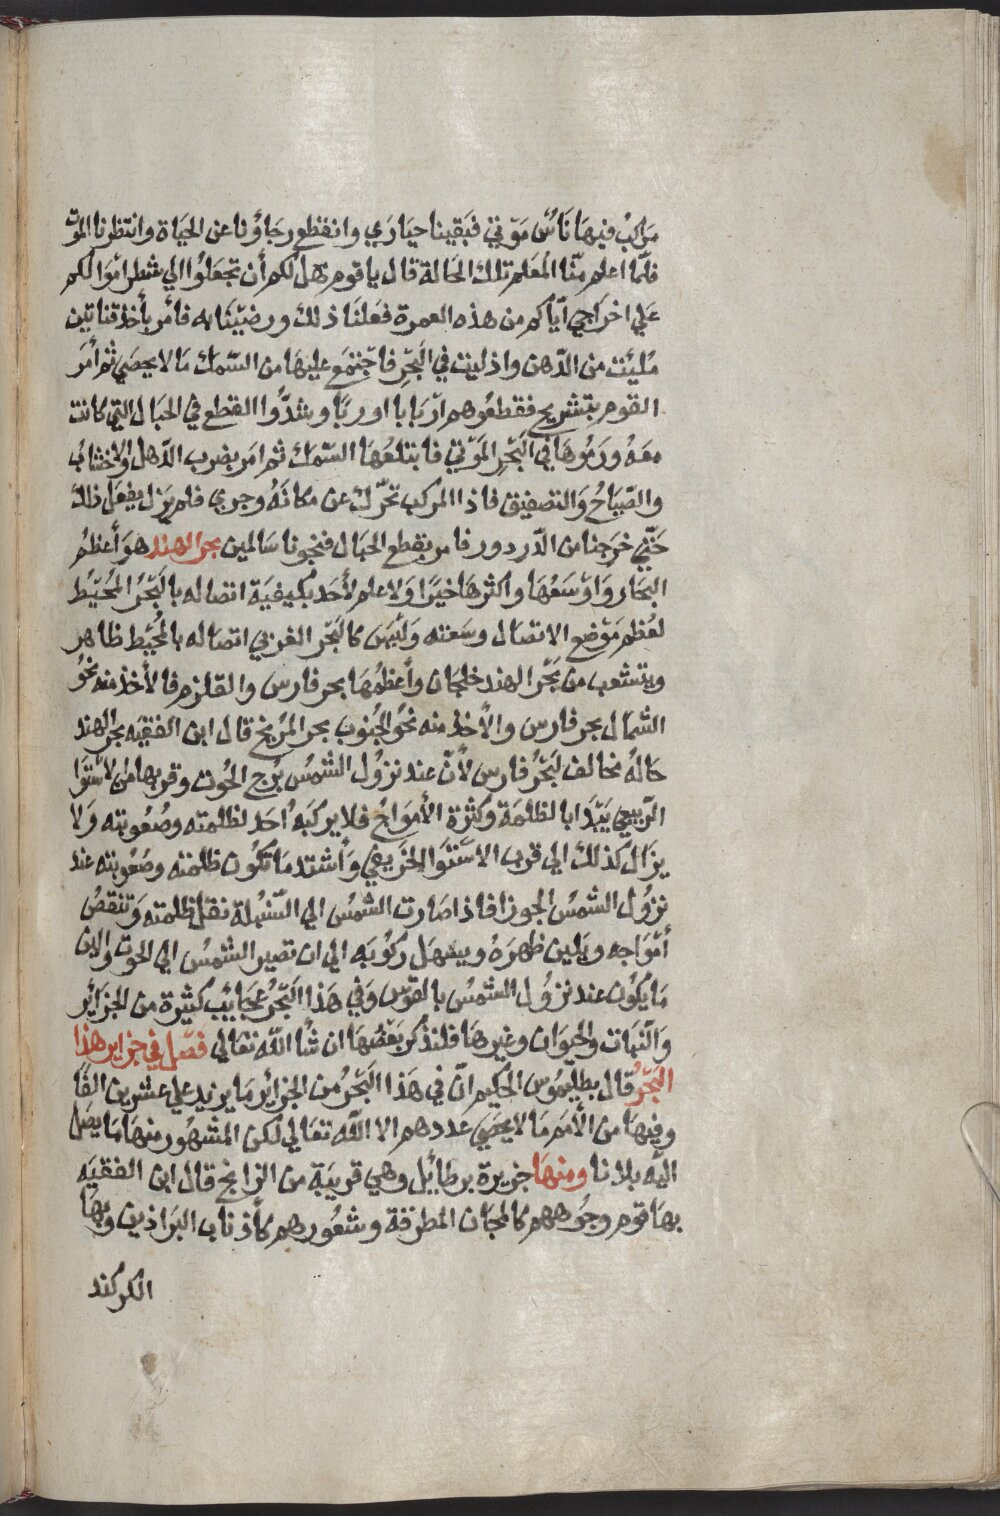 مراكبُ فيهَا نَاسٌ مَوتي فَبَقينا حيَارَي وانقطع رجَاؤنا عن الحيَاة وانتظرنا الموت
فلمّا اعلم منّا المُعَلم تلك الحَالة قال يا قوم هَل لكم أن تجعَلوُا الي شطر اموَالكم
عَلي اخراجي ايّاكم من هذه العمرة فعَلنَا ذلك ورضيْنَا به فأمَر بأخذ قناتين
مُلئت من الدّهن واذليت في البَحْرِ فاجْتمَع عليهَا من السّمك مَا لا يحصَي ثم أمَر
القوم بتشريح فقطعُوهم ارْبَابا اوربًا وشدُّوا القطع في الحبَال التي كانت
معَهُ ورَموُهَا في البَحْرِ المَوَتي فابتلعُهَا السّمك ثم امَر بضرب الدّهل والاخشابُ
والصّيَاحُ وَالتصفيق فاذا المركب تحَرّك عن مكانَهُ وجري فلم يَزل يفعَل ذلك
حَتّي خرَجنا من الدّردور فامر بقطع الحبَال فنجونا سَالمين بحر الهند هوَ أعظمُ
البحَار وَاوْسَعُهَا واكثرهَا خيرًا وَلا علم لأحَد بكيفيَة اتصاله بالبَحْرُ المُحيْط
لعُظم مَوْضع الاتصَال وسَعته وَليْسَ كالبَحْر الغربي اتصاله بالمُحيْط ظاهر
ويتشعب من بَحْر الهند خلجَان وأعظمُهَا بحر فارس والقلزم فالأخذ منه نحوُ
الشمَال بحر فارس والأخذ منه نحوُ الجُنوب بحر المزنج قال ابن الفقيَه بحر الهند
حَالهُ مخالف لبَحْرُ فارس لأنّ عند نزوُل الشمسُ بُرج الحُوت وقربهَا من الاسْتوَا
الرّبيعي يَبْدَا بالظلمَة وكثرة الأموَاجُ فلا يركَبهُ احَد لظلمته وصُعُوبته وَلا
يزال كذلك الي قرب الاسْتوَا الخرَيفي وَأشتد مَا تكُون ظلمته وصُعُوبته عند
نزوُل الشمسُ الجوزا فاذا صَارت الشمسُ الي السّنبُلة نقل ظلمته وَتنقصُ
أموَاجه ويَلين ظهرَهُ ويسْهَل ركُوبَه الي ان تصير الشمسُ الي الحوت والين
مَا يكُون عند نزوُل الشمسُ بالقوس وَفي هَذا البَحْرُ عجَايبُ كثيْرة من الجزَائر
وَالنّبات والحيوان وغيرهَا فلنذكر بَعْضُهَا ان شَا اللّه تعَالي فصّل في جزاير هذا
البَحْرُ قال بطليْموس الحكيم انّ في هَذا البَحْرُ من الجزائر مَا يزيد علي عشرين الفًا
وفيهَا من الأمَم مَا لا يحصَي عددهم الا اللّه تعَالي لكن المشهُور منهَا مَا يصَل
اليه بلادنا ومنهَا جزيرة برطائيل وهي قريَبة من الزانج قال ابن الفقيَه
بهَا قوم وجُوههم كالمجان المطرقة وشعُورهم كأذناب البرَاذين وبهَا
الكركند